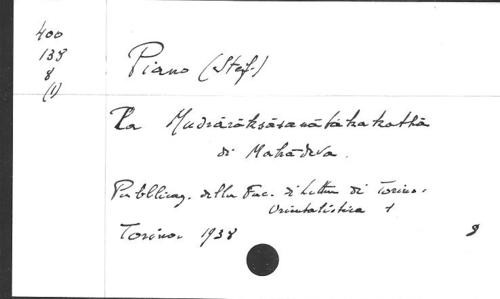 400
138
8
(1)
Piano (Stef.)
La Mudrārākṣasanāṭakakathā
di Mahādeva.
Pubblicaz. della Fac. di Lettere di Torino.
Orientalistica 1
Torino. 1938